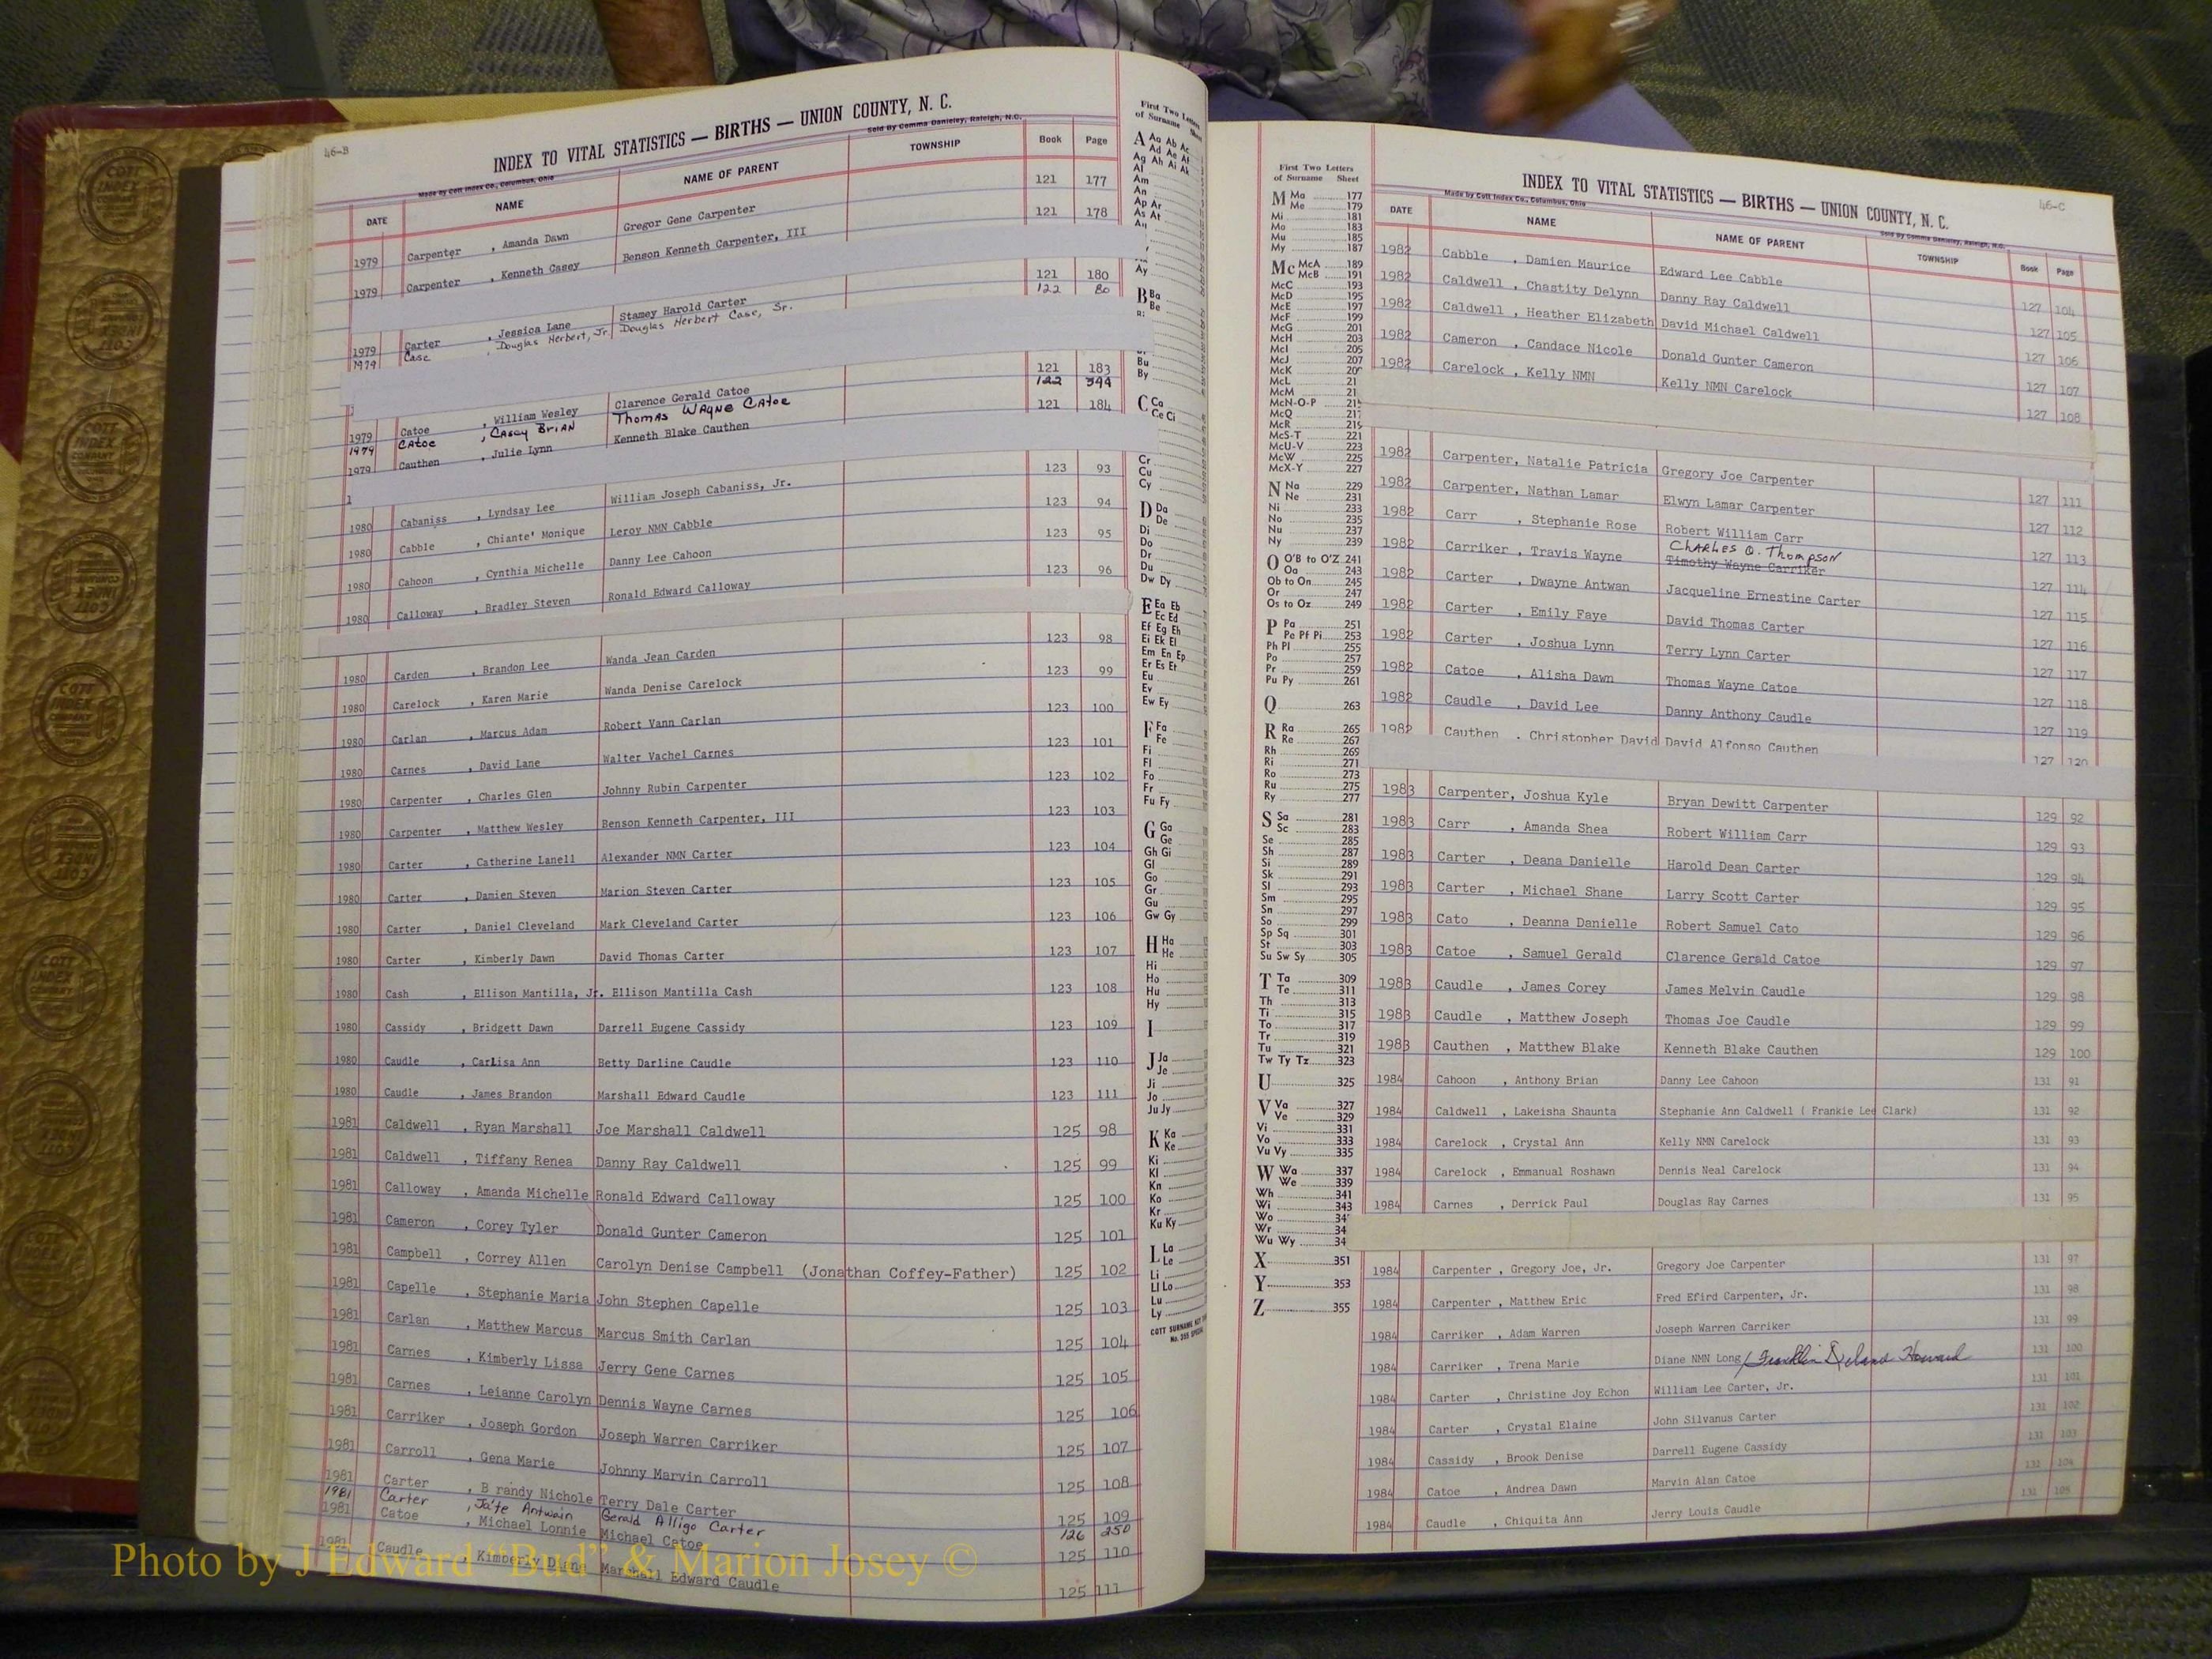 46-B
INDEX TO VITAL STATISTICS — BIRTHS — UNION COUNTY, N. C.
Made by Cott Index Co., Columbus, Ohio Sold By Comma Danieley, Raleigh, N.C.
DATE NAME NAME OF PARENT TOWNSHIP Book Page
1979 Carpenter , Amanda Dawn Gregor Gene Carpenter 121 177
1979 Carpenter , Kenneth Casey Benson Kenneth Carpenter, III 121 178
1979 Carter , Jessica Lane Stamey Harold Carter 121 180
1979 Case , Douglas Herbert, Jr. Douglas Herbert Case, Sr. 122 80
1979 Catoe , William Wesley Clarence Gerald Catoe 121 183
1979 Catoe , Casey Brian Thomas Wayne Catoe 122 394
1979 Cauthen , Julie Lynn Kenneth Blake Cauthen 121 184
1980 Cabaniss , Lyndsay Lee William Joseph Cabaniss, Jr. 123 93
1980 Cabble , Chiante' Monique Leroy NMN Cabble 123 94
1980 Cahoon , Cynthia Michelle Danny Lee Cahoon 123 95
1980 Calloway , Bradley Steven Ronald Edward Calloway 123 96
1980 Carden , Brandon Lee Wanda Jean Carden 123 98
1980 Carelock , Karen Marie Wanda Denise Carelock 123 99
1980 Carlan , Marcus Adam Robert Vann Carlan 123 100
1980 Carnes , David Lane Walter Vachel Carnes 123 101
1980 Carpenter , Charles Glen Johnny Rubin Carpenter 123 102
1980 Carpenter , Matthew Wesley Benson Kenneth Carpenter, III 123 103
1980 Carter , Catherine Lanell Alexander NMN Carter 123 104
1980 Carter , Damien Steven Marion Steven Carter 123 105
1980 Carter , Daniel Cleveland Mark Cleveland Carter 123 106
1980 Carter , Kimberly Dawn David Thomas Carter 123 107
1980 Cash , Ellison Mantilla, Jr. Ellison Mantilla Cash 123 108
1980 Cassidy , Bridgett Dawn Darrell Eugene Cassidy 123 109
1980 Caudle , Carlisa Ann Betty Darline Caudle 123 110
1980 Caudle , James Brandon Marshall Edward Caudle 123 111
1981 Caldwell , Ryan Marshall Joe Marshall Caldwell 125 98
1981 Caldwell , Tiffany Renea Danny Ray Caldwell 125 99
1981 Calloway , Amanda Michelle Ronald Edward Calloway 125 100
1981 Cameron , Corey Tyler Donald Gunter Cameron 125 101
1981 Campbell , Correy Allen Carolyn Denise Campbell (Jonathan Coffey-Father) 125 102
1981 Capelle , Stephanie Maria John Stephen Capelle 125 103
1981 Carlan , Matthew Marcus Marcus Smith Carlan 125 104
1981 Carnes , Kimberly Lissa Jerry Gene Carnes 125 105
1981 Carnes , Leianne Carolyn Dennis Wayne Carnes 125 106
1981 Carriker , Joseph Gordon Joseph Warren Carriker 125 107
1981 Carroll , Gena Marie Johnny Marvin Carroll 125 108
1981 Carter , B randy Nichole Terry Dale Carter 125 109
1981 Carter , Ja'te Antwain Gerald Alligo Carter 126 250
1981 Catoe , Michael Lonnie Michael Catoe 125 110
1981 Caudle , Kimberly Diane Marshall Edward Caudle 125 111
First Two Letters
of Surname
A Aa Ab Ac
Ad Ae Af
Ag Ah Ai Ak
Al
Am
An
Ap Ar
As At
Ay
B Ba
Be
Bu
By
C Ca
Ce Ci
Cr
Cu
Cy
D Da
De
Di
Do
Dr
Du
Dw Dy
E Ea Eb
Ec Ed
Ef Eg Eh
Ei Ek El
Em En Ep
Er Es Et
Eu
Ev
Ew Ey
F Fa
Fe
Fi
Fl
Fo
Fr
Fu Fy
G Ga
Ge
Gh Gi
Gl
Go
Gr
Gu
Gw Gy
H Ha
He
Hi
Ho
Hu
Hy
I
J Ja
Je
Ji
Jo
Ju Jy
K Ka
Ke
Ki
Kl
Kn
Ko
Kr
Ku Ky
L La
Le
Li
Ll Lo
Lu
Ly
COTT SURNAME KEY
First Two Letters
of Surname Sheet
M Ma 177
Me 179
Mi 181
Mo 183
Mu 185
My 187
Mc McA 189
McB 191
McC 193
McD 195
McE 197
McF 199
McG 201
McH 203
McI 205
McJ 207
McK
McL
McM
McN-O-P
McQ
McR
McS-T 221
McU-V 223
McW 225
McX-Y 227
N Na 229
Ne 231
Ni 233
No 235
Nu 237
Ny 239
O O'B to O'Z 241
Oa 243
Ob to On 245
Or 247
Os to Oz 249
P Pa 251
Pe Pf Pi 253
Ph Pl 255
Po 257
Pr 259
Pu Py 261
Q 263
R Ra 265
Re 267
Rh 269
Ri 271
Ro 273
Ru 275
Ry 277
S Sa 281
Sc 283
Se 285
Sh 287
Si 289
Sk 291
Sl 293
Sm 295
Sn 297
So 299
Sp Sq 301
St 303
Su Sw Sy 305
T Ta 309
Te 311
Th 313
Ti 315
To 317
Tr 319
Tu 321
Tw Ty Tz 323
U 325
V Va 327
Ve 329
Vi 331
Vo 333
Vu Vy 335
W Wa 337
We 339
Wh 341
Wi 343
Wo
Wr
Wu Wy
X 351
Y 353
Z 355
46-C
INDEX TO VITAL STATISTICS — BIRTHS — UNION COUNTY, N. C.
Made by Cott Index Co., Columbus, Ohio Sold By Comma Danieley, Raleigh, N.C.
DATE NAME NAME OF PARENT TOWNSHIP Book Page
1982 Cabble , Damien Maurice Edward Lee Cabble 127 104
1982 Caldwell , Chastity Delynn Danny Ray Caldwell 127 105
1982 Caldwell , Heather Elizabeth David Michael Caldwell 127 106
1982 Cameron , Candace Nicole Donald Gunter Cameron 127 107
1982 Carelock , Kelly NMN Kelly NMN Carelock 127 108
1982 Carpenter, Natalie Patricia Gregory Joe Carpenter 127 111
1982 Carpenter, Nathan Lamar Elwyn Lamar Carpenter 127 112
1982 Carr , Stephanie Rose Robert William Carr 127 113
Charles Q. Thompson
1982 Carriker , Travis Wayne Timothy Wayne Carriker 127 114
1982 Carter , Dwayne Antwan Jacqueline Ernestine Carter 127 115
1982 Carter , Emily Faye David Thomas Carter 127 116
1982 Carter , Joshua Lynn Terry Lynn Carter 127 117
1982 Catoe , Alisha Dawn Thomas Wayne Catoe 127 118
1982 Caudle , David Lee Danny Anthony Caudle 127 119
1982 Cauthen , Christopher David David Alfonso Cauthen 127 120
1983 Carpenter, Joshua Kyle Bryan Dewitt Carpenter 129 92
1983 Carr , Amanda Shea Robert William Carr 129 93
1983 Carter , Deana Danielle Harold Dean Carter 129 94
1983 Carter , Michael Shane Larry Scott Carter 129 95
1983 Cato , Deanna Danielle Robert Samuel Cato 129 96
1983 Catoe , Samuel Gerald Clarence Gerald Catoe 129 97
1983 Caudle , James Corey James Melvin Caudle 129 98
1983 Caudle , Matthew Joseph Thomas Joe Caudle 129 99
1983 Cauthen , Matthew Blake Kenneth Blake Cauthen 129 100
1984 Cahoon , Anthony Brian Danny Lee Cahoon 131 91
1984 Caldwell , Lakeisha Shaunta Stephanie Ann Caldwell ( Frankie Lee Clark) 131 92
1984 Carelock , Crystal Ann Kelly NMN Carelock 131 93
1984 Carelock , Emmanual Roshawn Dennis Neal Carelock 131 94
1984 Carnes , Derrick Paul Douglas Ray Carnes 131 95
1984 Carpenter , Gregory Joe, Jr. Gregory Joe Carpenter 131 97
1984 Carpenter , Matthew Eric Fred Efird Carpenter, Jr. 131 98
1984 Carriker , Adam Warren Joseph Warren Carriker 131 99
1984 Carriker , Trena Marie Diane NMN Long/Franklin Deland Howard 131 100
1984 Carter , Christine Joy Echon William Lee Carter, Jr. 131 101
1984 Carter , Crystal Elaine John Silvanus Carter 131 102
1984 Cassidy , Brook Denise Darrell Eugene Cassidy 131 103
1984 Catoe , Andrea Dawn Marvin Alan Catoe 131 104
1984 Caudle , Chiquita Ann Jerry Louis Caudle 131 105
COTT
INDEX
COMPANY
Photo by J Edward “Bud” & Marion Josey ©